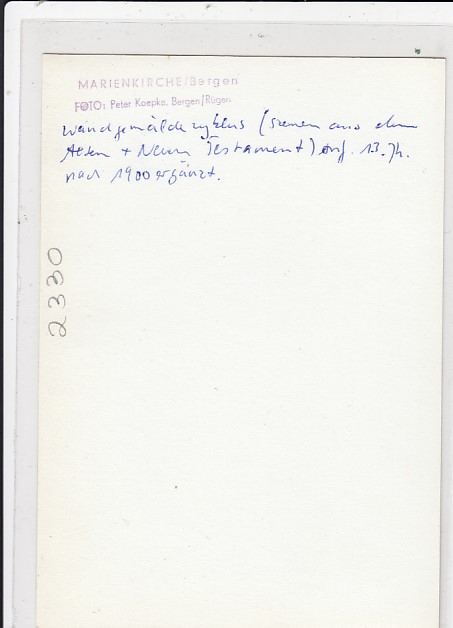 MARIENKIRCHE/Bergen
FOTO: Peter Koepke, Bergen/Rügen
Wandgemäldezyklus (Szenen aus dem
Alten + Neuen Testament) Anf. 13. Jh.
nach 1900 ergänzt.
2330